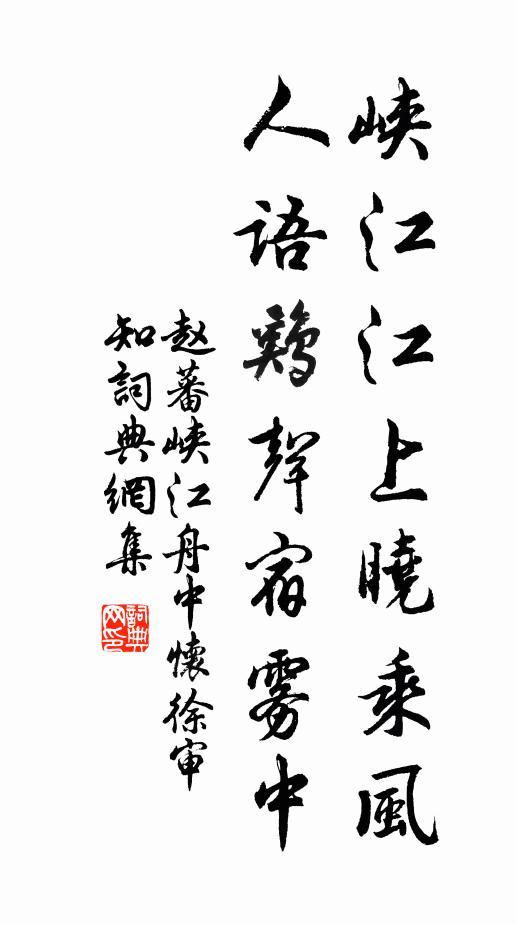 峽江江上曉乘風
人語鷄聲宿霧中
赵蕃峽江舟中懷徐审
知詞典網集
詞典
网印